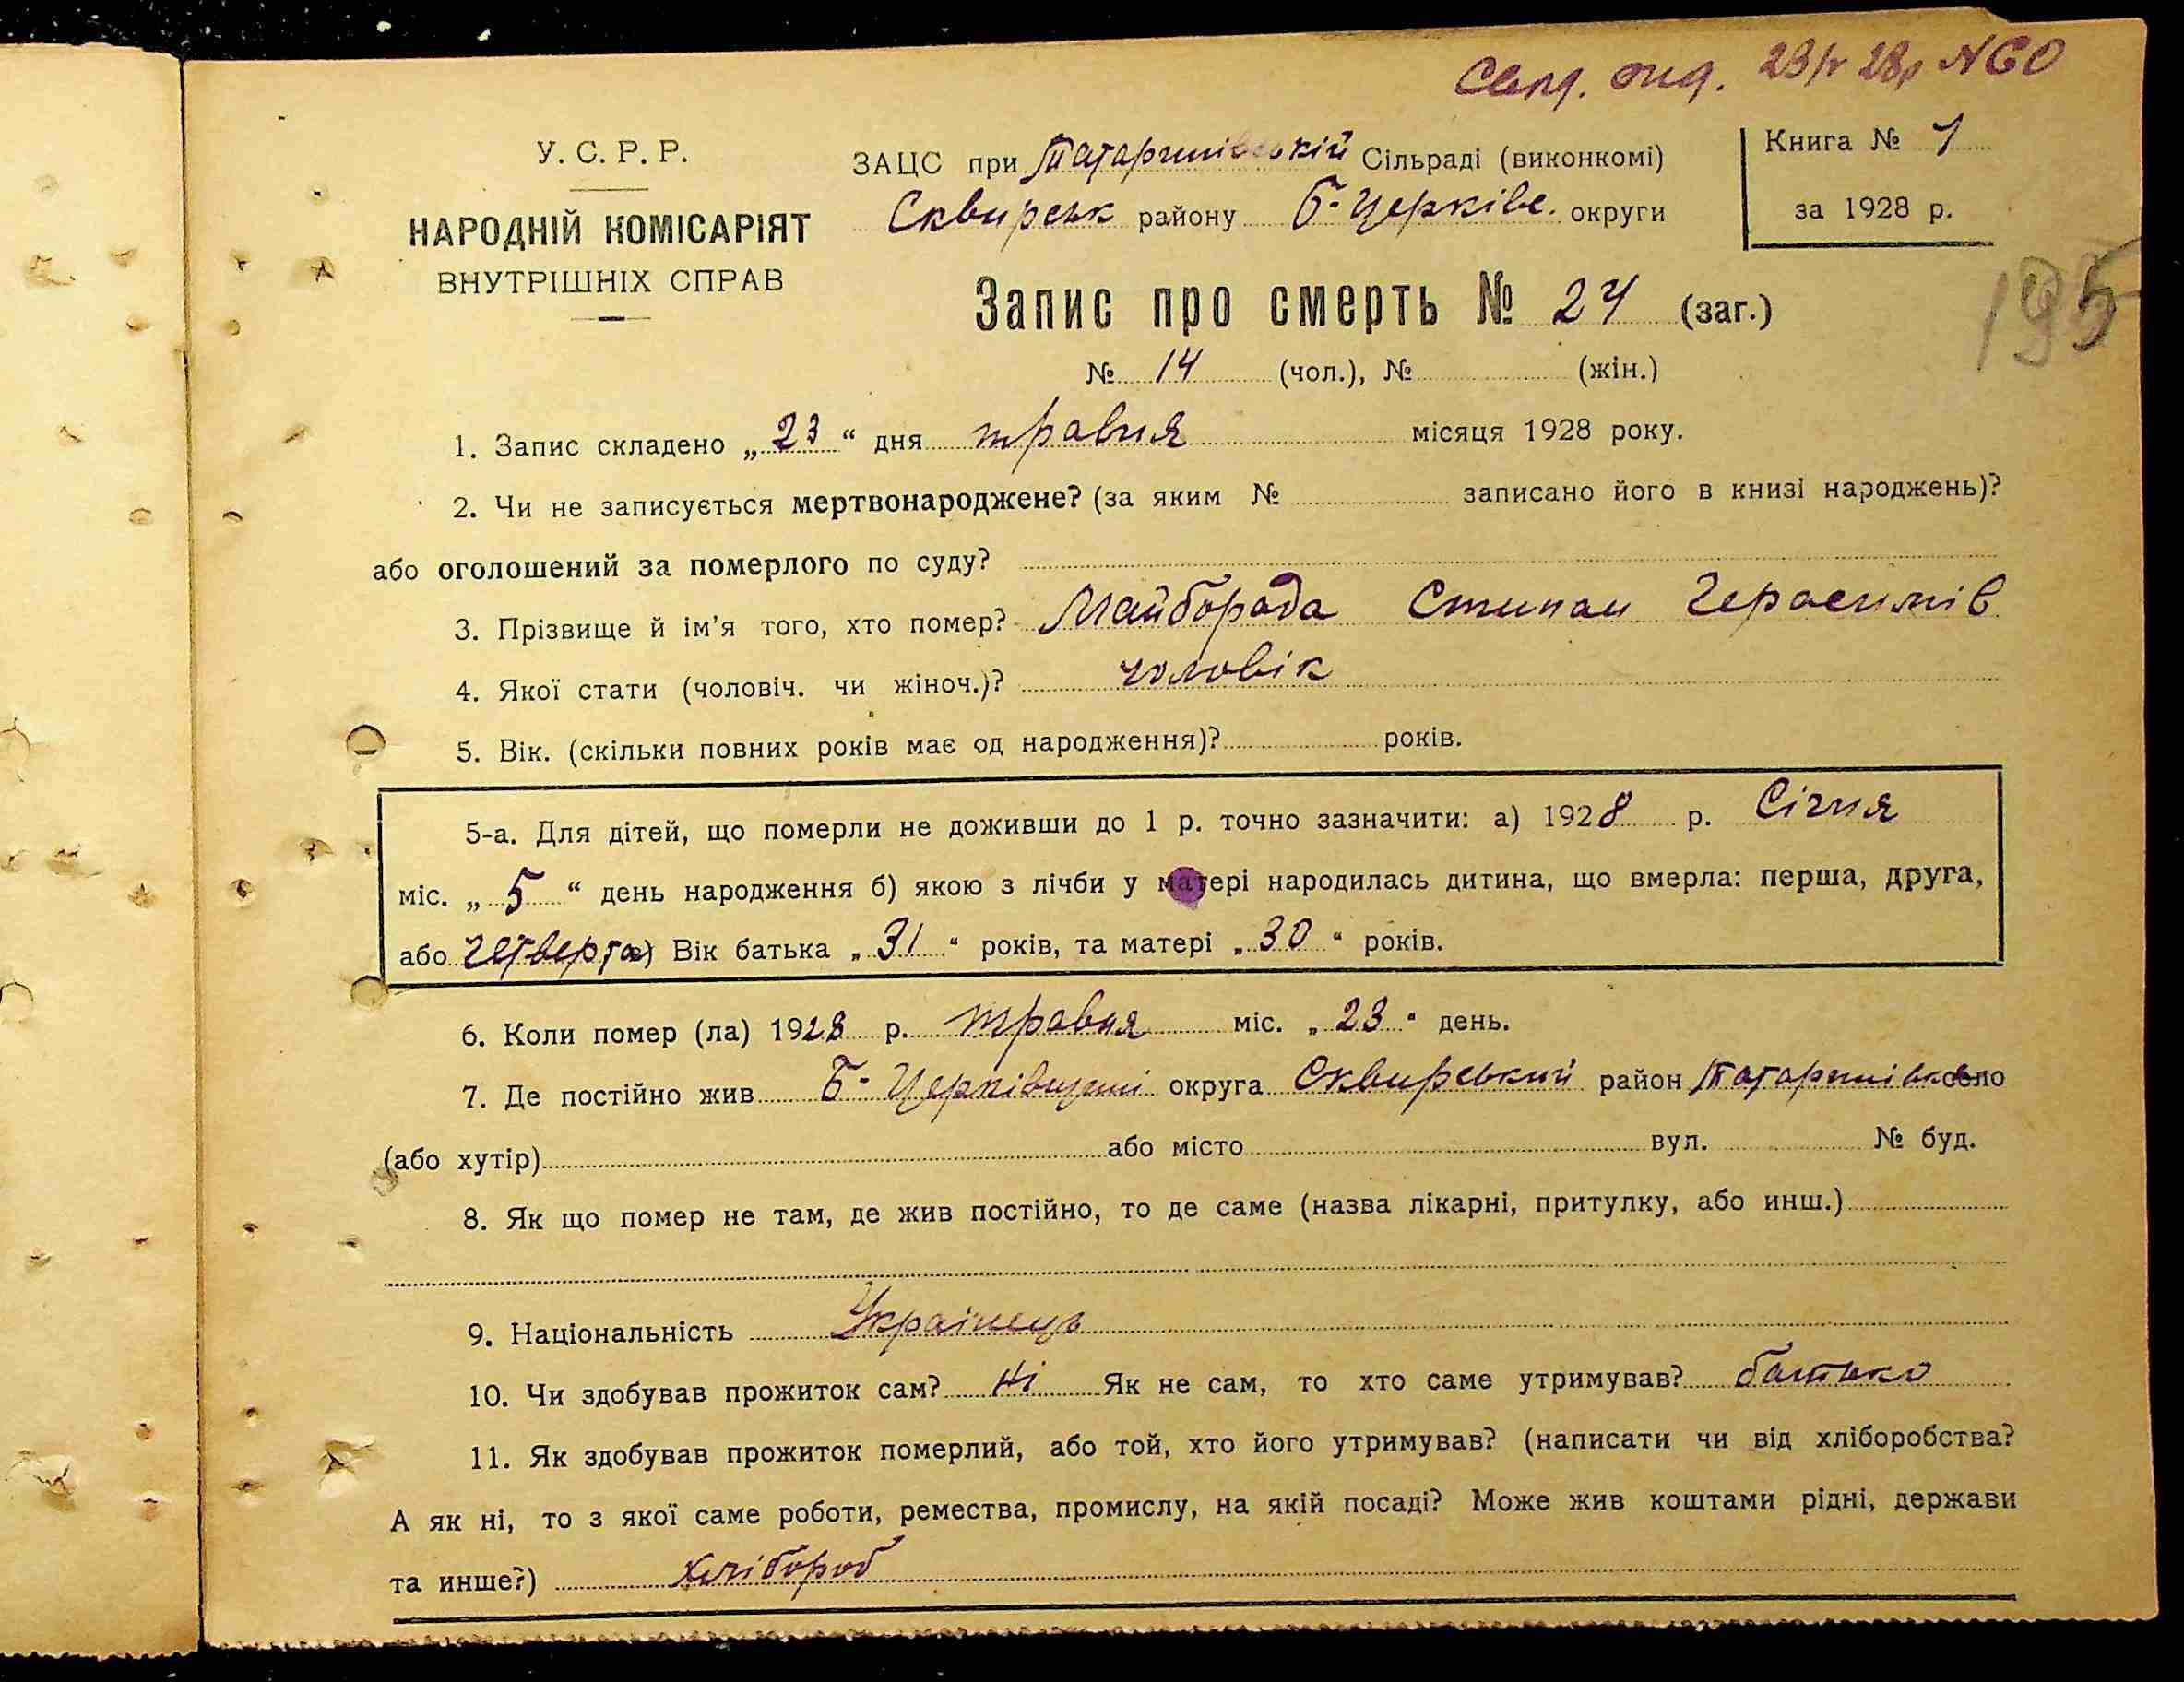 23/V 28р №60
У. С. Р. Р.
НАРОДНІЙ КОМІСАРІЯТ
ВНУТРІШНІХ СПРАВ
ЗАЦС при Татаринівській Сільраді (виконкомі)
Сквирськ району Б-Церківс. округи
Книга № 1
за 1928 р.
195
Запис про смерть № 24 (заг.)
№ 14 (чол.), № (жін.)
1. Запис складено „23“ дня травня місяця 1928 року.
2. Чи не записується мертвонароджене? (за яким № записано його в книзі народжень)?
або оголошений за померлого по суду?
3. Прізвище й ім'я того, хто помер? Майборода Степан Герасимів
4. Якої стати (чоловіч. чи жіноч.)? чоловік
5. Вік. (скільки повних років має од народження)? років.
5-а. Для дітей, що померли не доживши до 1 р. точно зазначити: а) 1928 р. Січня
міс. „5“ день народження б) якою з лічби у матері народилась дитина, що вмерла: перша, друга,
або четверта) Вік батька „31“ років, та матері „30“ років.
6. Коли помер (ла) 1928 р. травня міс. „23“ день.
7. Де постійно жив Б-Церківщині округа Сквирський район Татаринівка село
(або хутір) або місто вул. № буд.
8. Як що помер не там, де жив постійно, то де саме (назва лікарні, притулку, або инш.)
9. Національність Українець
10. Чи здобував прожиток сам? Ні Як не сам, то хто саме утримував? батько
11. Як здобував прожиток померлий, або той, хто його утримував? (написати чи від хліборобства?
А як ні, то з якої саме роботи, ремества, промислу, на якій посаді? Може жив коштами рідні, держави
та инше?) хлібороб